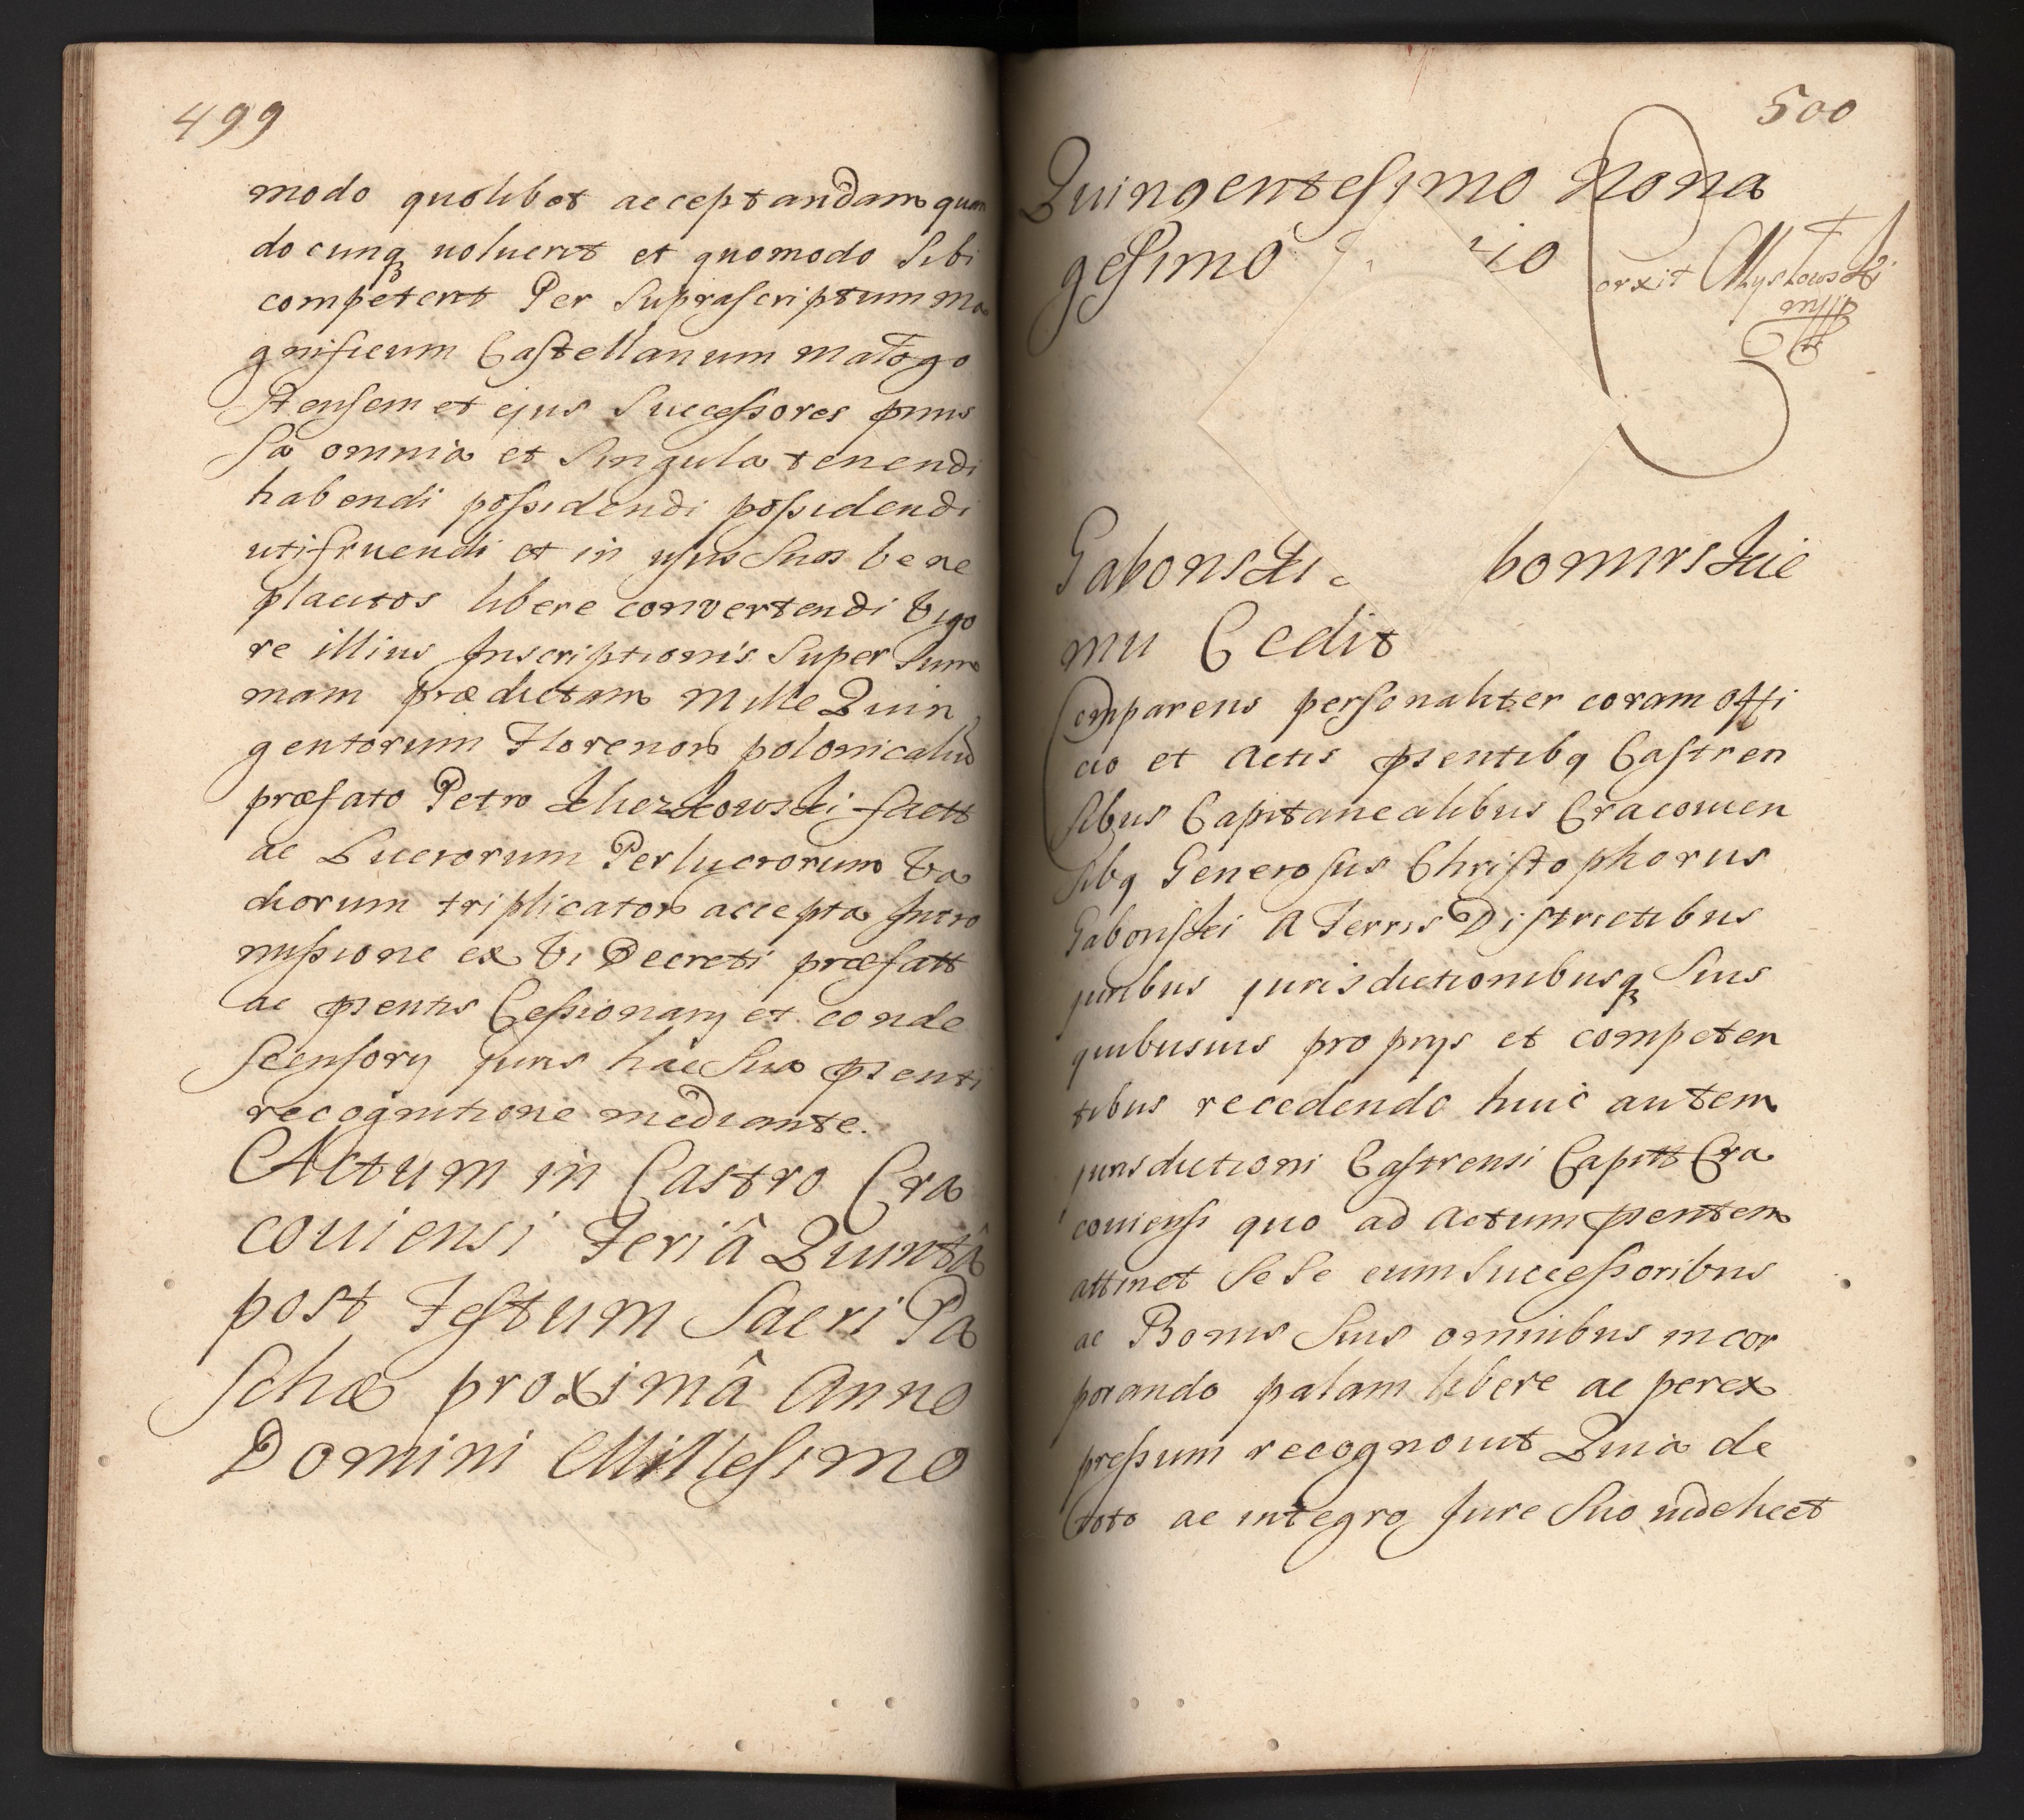 499
modo quolibet acceptandam quan
docunq uoluerit et quomodo Sibi
competent Per Suprascriptum Ma
gnificum Castellanum Małogo
stensem et ejus Successores pmis
sa omnia et Singula tenendi
habendi possidendi possidendi
utifruendi et in usus Suos bene
placitos libere convertendi Vigo
re illius Inscriptionis Super Sum
mam prædictam Mille Quin
gentorum Florenor polonicaliu
præfato Petro
ac Lucrorum Perlucrorum Va
diorum triplicator accepta Intro
missione ex Vi Decreti præfatt
ac psentis Cessionarij et conde
scensorij juris hac Sua psenti
recognitione mediante.
Actum in Castro Cra
couiensi Feriâ Quintâ
post Festum Sacri Pa
schæ proximâ Anno
Domini Millesimo
500
Quingentesimo Nona
gesimo
Gabonski
mu Cedit
Comparens personaliter coram offi
cio et Actis psentibq Castren
sibus Capitanealibus Cracouien
sibq Generosus Christophorus
Gabonski A Terris Districtibus
juribus jurisdictionibusq Suis
quibusuis proprijs et competen
tibus recedendo huic autem
jurisdictioni Castrensi Capitt Cra
couiensi quo ad Actum psentem
attinet Se Se cum Successoribus
ac Bonis Suis omnibus incor
porando palam libere ac perex
pressum recognouit Quia de
toto ac integro Jure Suo uidelicet